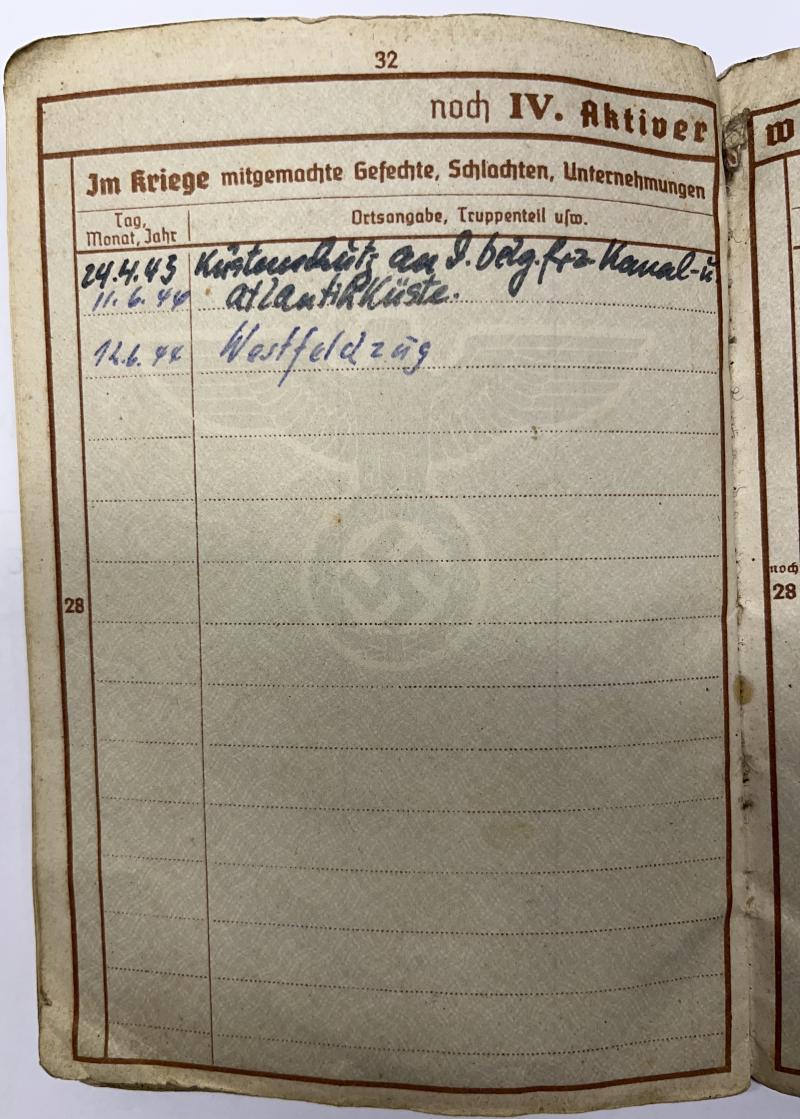 32
noch IV. Aktiver
W
Im Kriege mitgemachte Gefechte, Schlachten, Unternehmungen
Tag,
Monat, Jahr
Ortsangabe, Truppenteil usw.
24.4.43 Küstenschutz an d. belg. frz. Kanal- u.
11.6.44 Atlantikküste.
12.6.44 Westfeldzug
28
noch
28